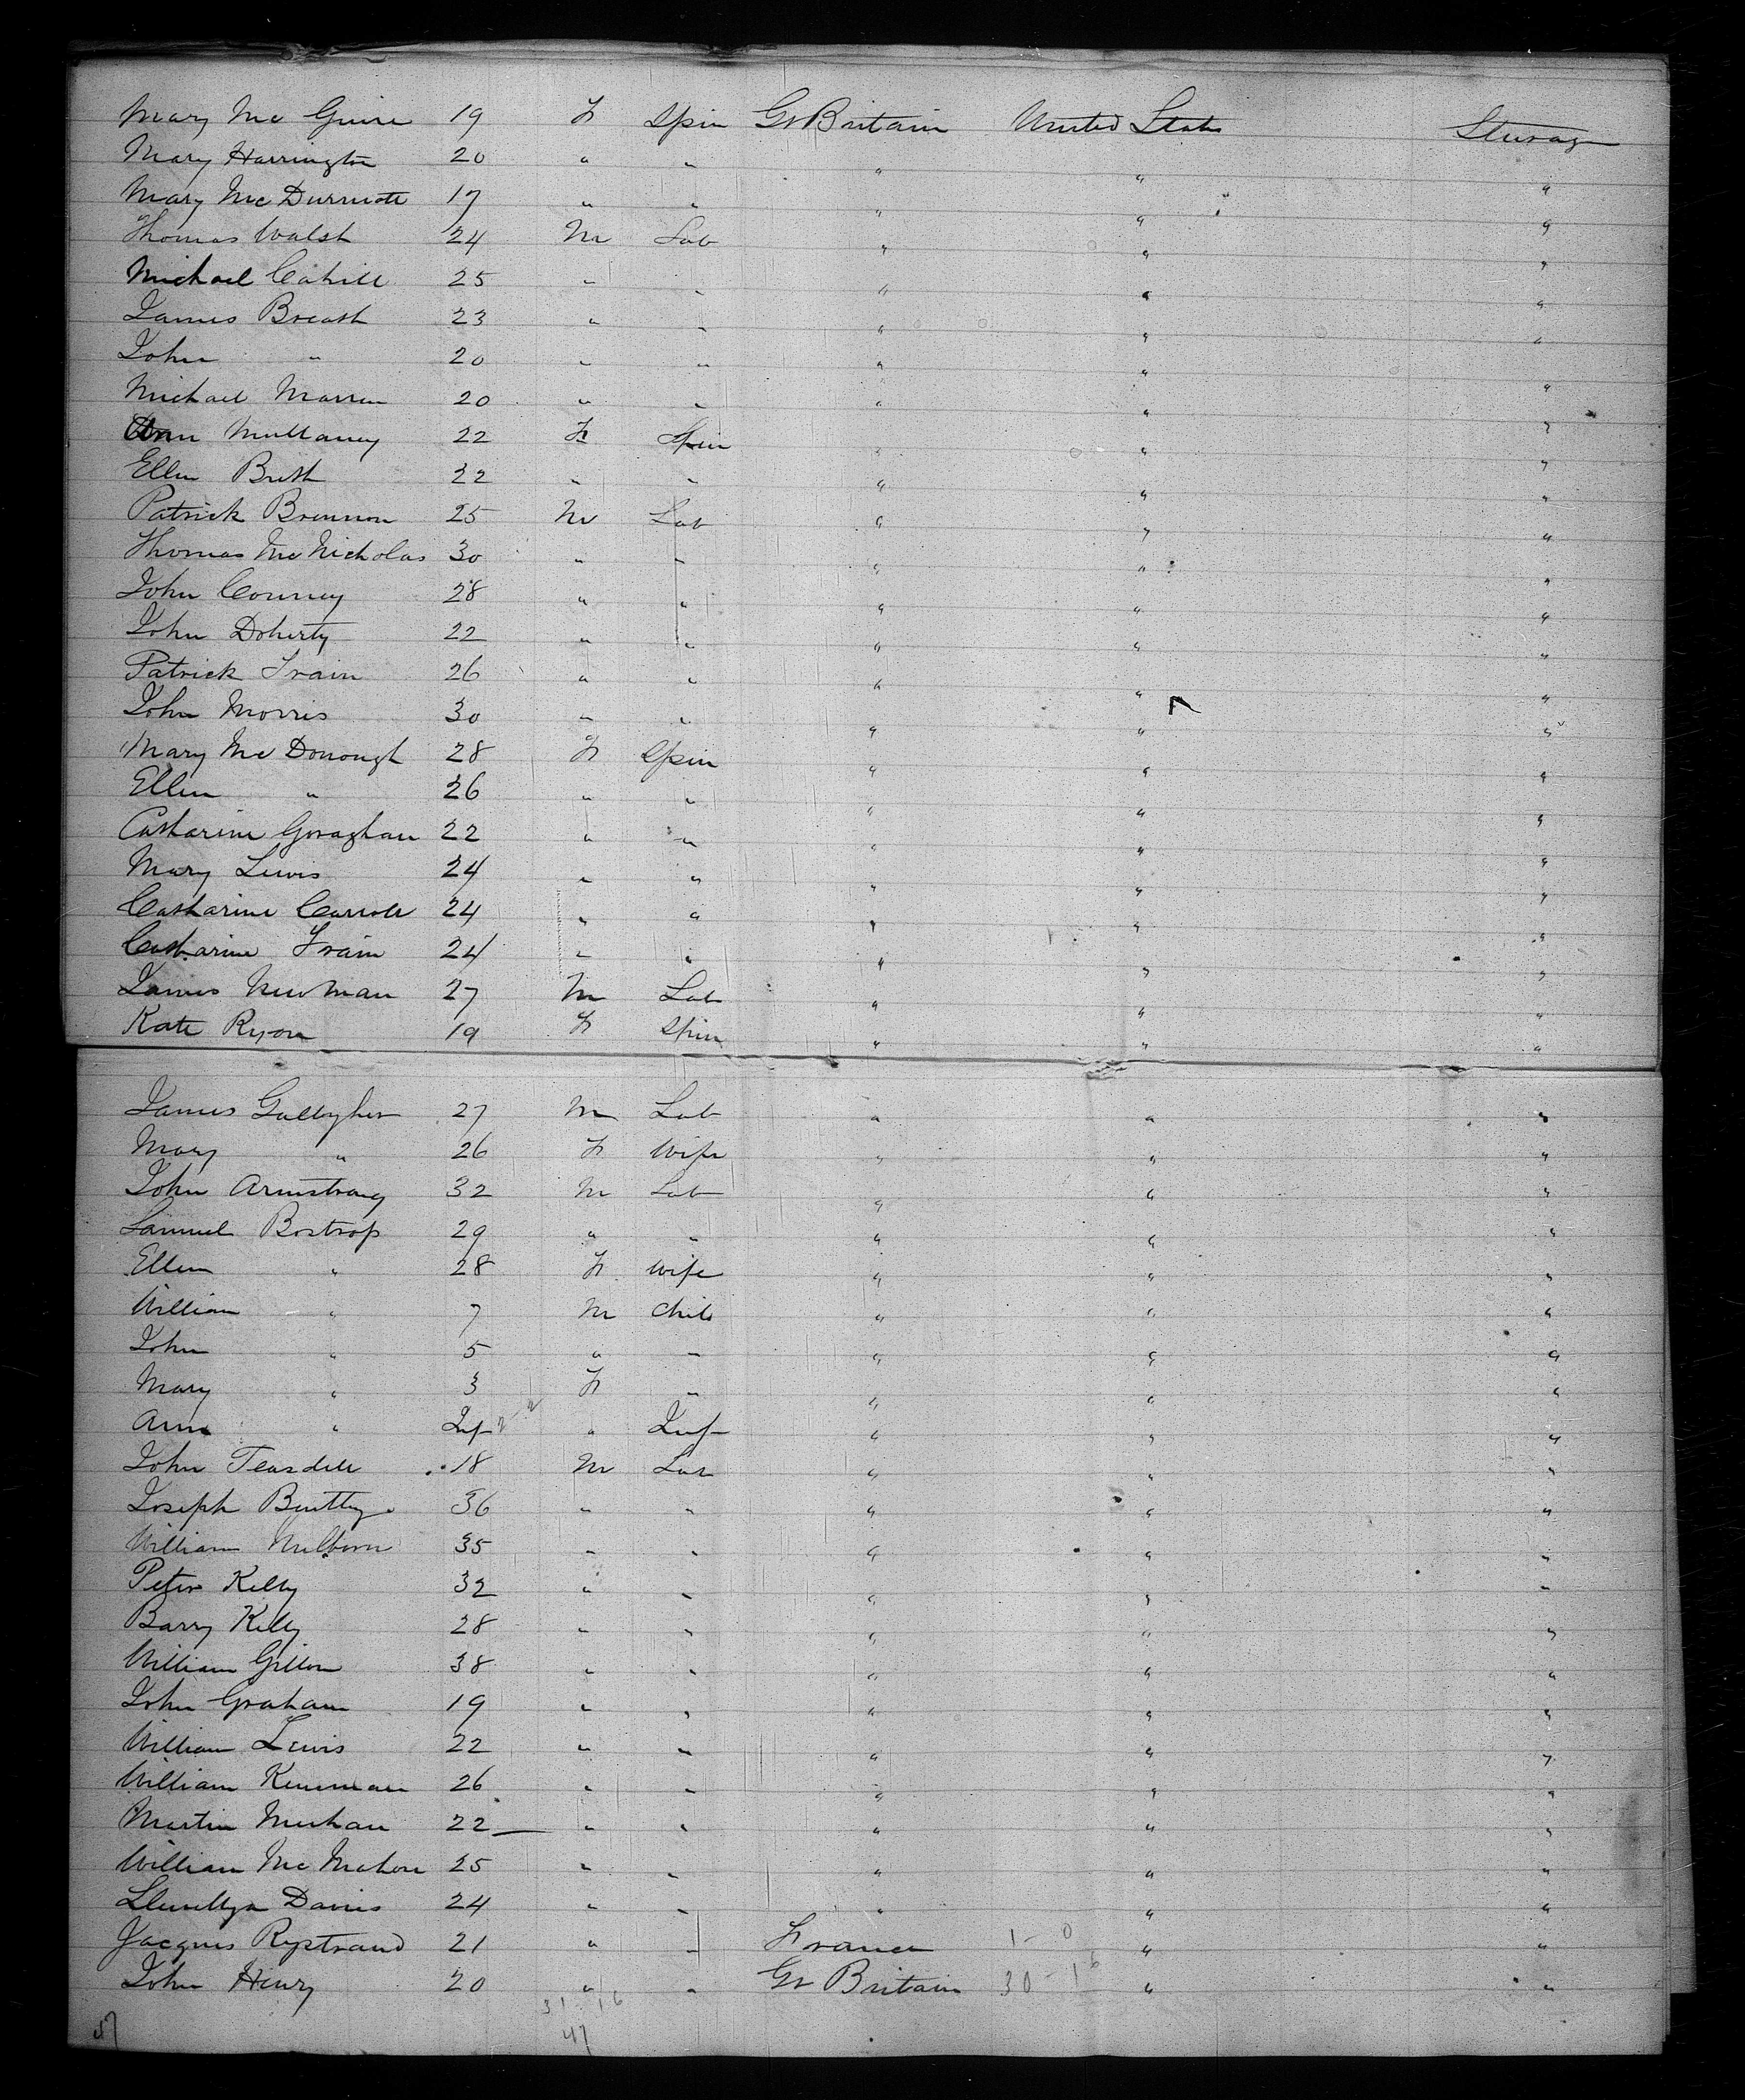 Mary Mc Guire 19 F Spin Gt Britain United States Steerage
Mary Harrington 20 " " " " "
Mary Mc Durmott 17 " " " " "
Thomas Walsh 24 M Lab " " "
Michael Cahill 25 " " " " "
James Breath 23 " " " " "
John " 20 " " " " "
Michael Marren 20 " " " " "
Ann Mullaney 22 F Spin " " "
Ellen 22 " " " " "
Patrick Brennon 25 M Lab " " "
Thomas Mc Nicholas 30 " " " " "
John 28 " " " " "
John Doherty 22 " " " " "
Patrick Frain 26 " " " " "
John Morris 30 " " " " "
Mary Mc Donough 28 F Spin " " "
Ellen " 26 " " " " "
Catharine Goraghan 22 " " " " "
Mary Lewis 24 " " " " "
Catharine Carroll 24 " " " " "
Catharine Frain 24 " " " " "
James Newman 27 M Lab " " "
Kate Ryon 19 F Spin " " "
James Gallagher 27 M Lab " " "
Mary " 26 F Wife " " "
John Armstrong 32 M Lab " " "
Samuel Bostrop 29 " " " " "
Ellen " 28 F Wife " " "
William " 7 M Child " " "
John " 5 " " " " "
Mary " 3 F " " " "
Ann " Inf " Inf " " "
John Teasdell 18 M Lab " " "
Joseph 36 " " " " "
William Milborn 35 " " " " "
Peter Kelly 32 " " " " "
Barry Kelly 28 " " " " "
William Gillon 38 " " " " "
John Graham 19 " " " " "
William Lewis 22 " " " " "
William 26 " " " " "
Martin Meehan 22 " " " " "
William Mc Mahon 25 " " " " "
Llewellyn Davies 24 " " " " "
Jacques 21 " " France 1 - 0 " "
John Henry 20 " " Gt Britain 30 - 16 " "
31 - 16
47
57